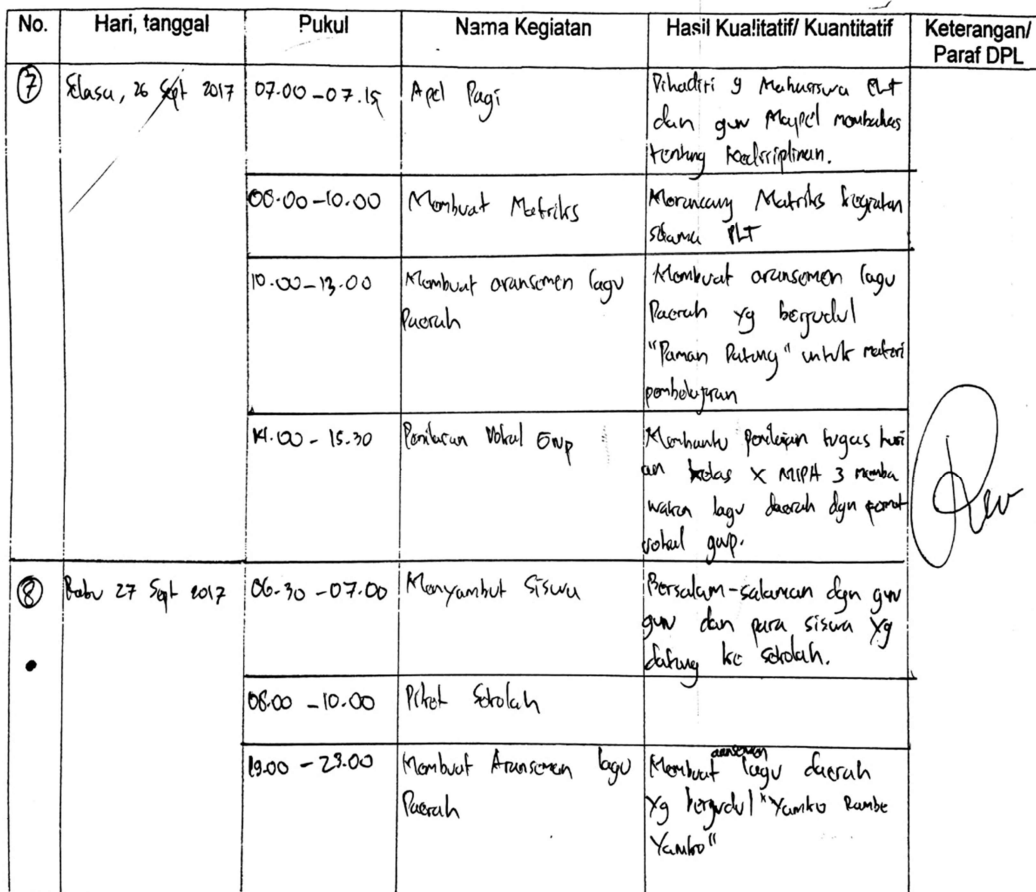 No. Hari, tanggal Pukul Nama Kegiatan Hasil Kualitatif/ Kuantitatif Keterangan/
Paraf DPL
7 Selasa, 26 Sept 2017 07.00 - 07.15 Apel Pagi Dihadiri 9 Mahasiswa PLT
dan guru Mapel membahas
tentang kedisiplinan.
08.00 - 10.00 Membuat Matriks Merancang Matriks kegiatan
selama PLT
10.00 - 13.00 Membuat aransemen lagu Membuat aransemen lagu
Daerah Daerah yg berjudul
"Paman Datang" untuk materi
pembelajaran
14.00 - 15.30 Penilaian Vokal Grup Membantu penilaian tugas hari
an kelas X MIPA 3 memba
wakan lagu daerah dgn
vokal grup.
8 Rabu 27 Sept 2017 06.30 - 07.00 Menyambut Siswa Bersalam-salaman dgn guru
guru dan para siswa yg
datang ke sekolah.
08.00 - 10.00 Piket Sekolah
19.00 - 23.00 Membuat Aransemen lagu Membuat aransemen lagu daerah
Daerah yg berjudul "Yamko Rambe
Yamko"